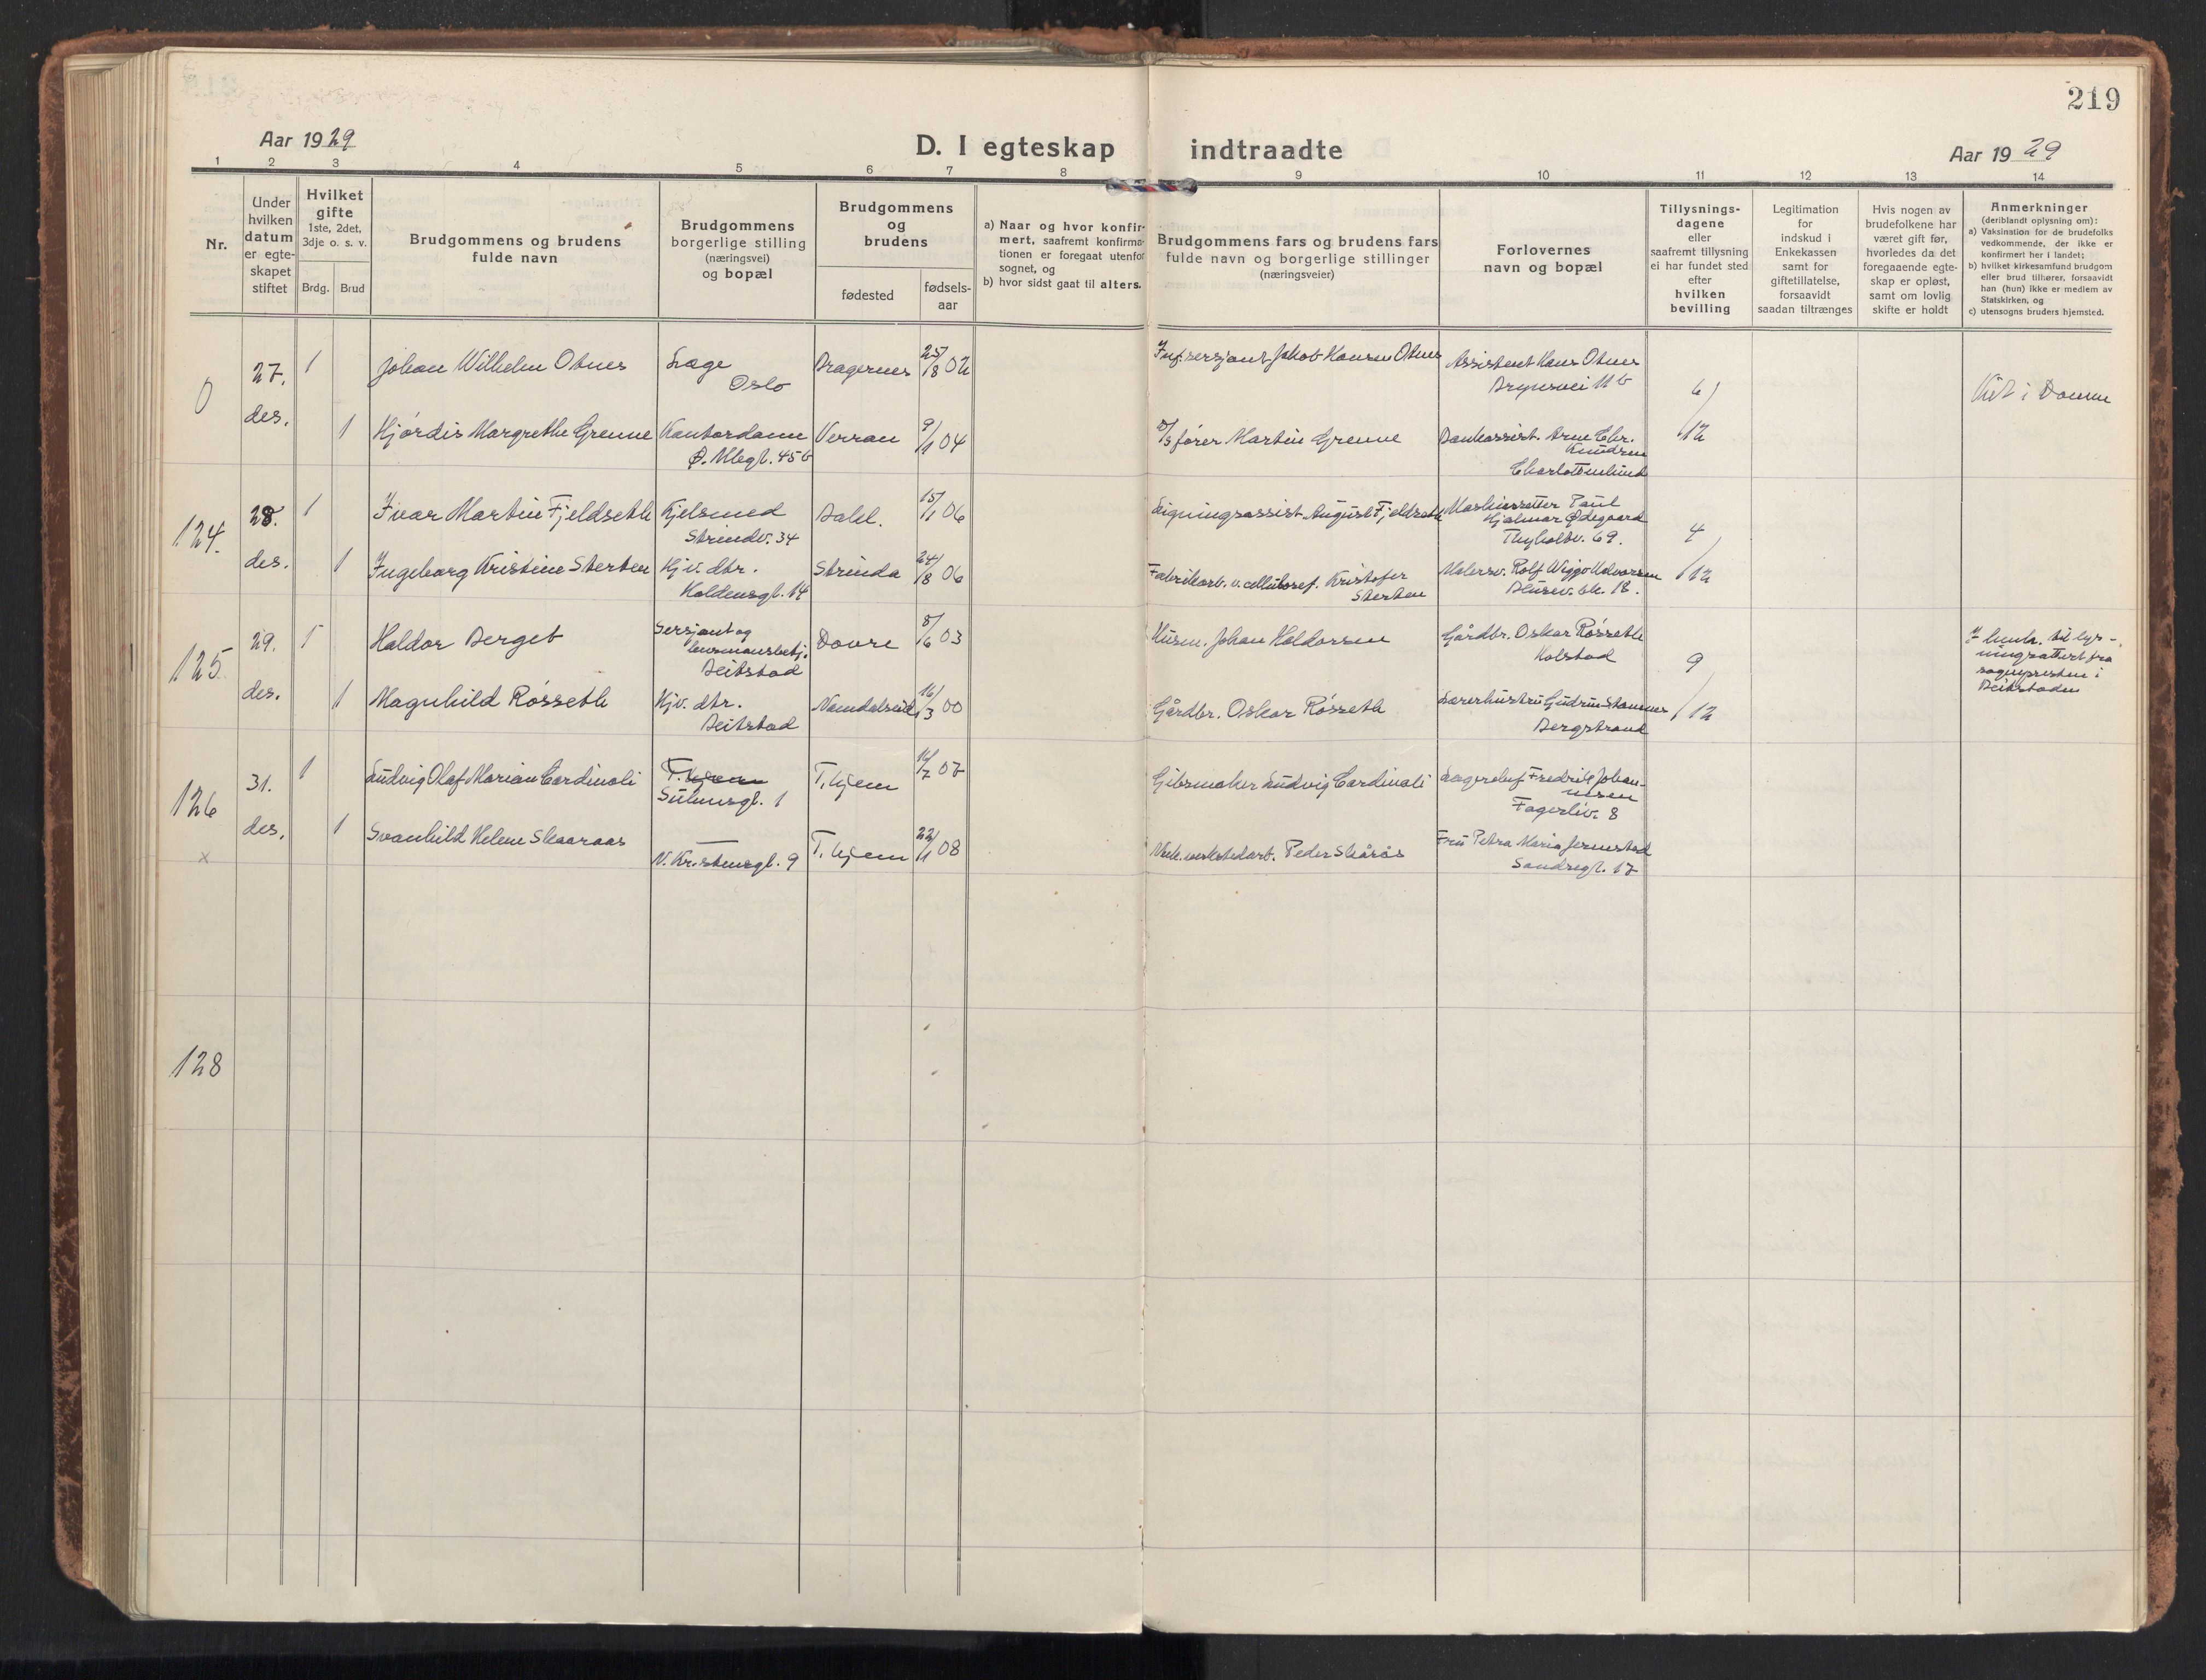 219
Aar 1929
D. I egteskap indtraadte
Aar 1929
1 2 3 4 5 6 7 8 9 10 11 12 13 14
Nr.
Under
hvilken
datum
er egte-
skapet
stiftet
Hvilket
gifte
1ste, 2det,
3dje o. s. v.
Brdg. Brud
Brudgommens og brudens
fulde navn
Brudgommens
borgerlige stilling
(næringsvei)
og bopæl
Brudgommens
og
brudens
fødested
fødsels-
aar
a) Naar og hvor konfir-
mert, saafremt konfirma-
tionen er foregaat utenfor
sognet, og
b) hvor sidst gaat til alters.
Brudgommens fars og brudens fars
fulde navn og borgerlige stillinger
(næringsveier)
Forlovernes
navn og bopæl
Tillysnings-
dagene
eller
saafremt tillysning
ei har fundet sted
efter
hvilken
bevilling
Legitimation
for
indskud i
Enkekassen
samt for
giftetillatelse,
forsaavidt
saadan tiltrænges
Hvis nogen av
brudefolkene har
været gift før,
hvorledes da det
foregaaende egte-
skap er opløst,
samt om lovlig
skifte er holdt
Anmerkninger
(deriblandt oplysning om):
a) Vaksination for de brudefolks
vedkommende, der ikke er
konfirmert her i landet;
b) hvilket kirkesamfund brudgom
eller brud tilhører, forsaavidt
han (hun) ikke er medlem av
Statskirken, og
c) utensogns bruders hjemsted.
0
27.
des.
1
Johan Wilhelm Otnes
Læge
Oslo
Bragernes
25/8 02
Inf. sersjant Jakob Hansen Otnes
Assistent Hans Otnes
Brynsvei 11 b
6/12
Viet i Domen
1
Hjördis Margrethe Grenne
Kontordame
Ø. Møllegt. 45 b
Verran
9/1 04
D/S fører Martin Grenne
Bankassist. Arne Chr.
Knudsen
Charlottenlund
124.
28.
des.
1
Ivar Martin Fjeldseth
Kjelsmed
Strindv. 34
Bakl.
15/1 06
Ligningsassist. August Fjeldseth
Maskinsetter Paul
Hjalmar Ødegaard
Thyholtv. 69.
4/12
1
Ingeborg Kristine Sterten
Hjv. dtr.
Koldensgt. 14
Strinda
24/8 06
Fabrikarb. v. cellulosef. Kristofer
Sterten
Malersv. Rolf Wiggo Halvorsen
18.
125.
29.
des.
1
Haldor Berget
Sersjant og
lensmansbetj.
Beitstad
Dovre
8/6 03
Husm. Johan Haldorsen
Gårdbr. Oskar Rösseth
Kolstad
9/12
I henh. til lys-
ningsattest fra
sognepresten i
Beitstaden
1
Magnhild Rösseth
Hjv. dtr.
Beitstad
Namdalseid
16/3 00
Gårdbr. Oskar Rösseth
Lærerhustru Gudrun Stamnes
Bergstrand
126
x
31.
des.
1
Ludvig Olaf Marian Cardinali
T. hjem
Suhmsgt. 1
T. hjem
14/7 07
Gibsmaker Ludvig Cardinali
Lagerchef Fredrik Johan-
nesen
Fagerliv. 8
1
Svanhild Helene Skaaraas
—
V. Kristensgt. 9
T. hjem
22/11 08
Mek. verkstedarb. Peder Skårås
Fru Petra Maria Jernstad
Sandsegt. 17
128